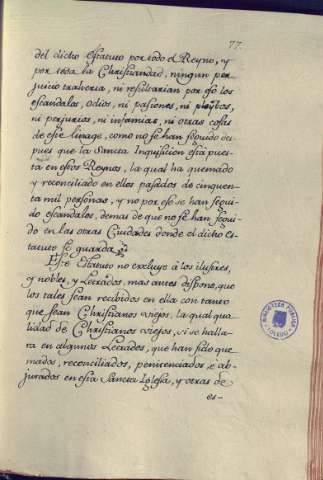 77.
del dicho estatuto por todo el Reyno, y
por toda la Christiandad, ningun per
juicio traheria, ni resultarian por eso los
escandalos, odios, ni pasiones, ni pleytos,
ni perjurios, ni infamias, ni otras cosas
de este linage, como no se han seguido des
pues que la Sancta Inquisicion està pues-
ta en estos Reynos, la qual ha quemado
y reconciliado en ellos pasados de cinquen
ta mil personas, y no por eso se han segui
do escandalos, demas de que no se han segui
do en las otras Ciudades donde el dicho es-
tatuto se guarda.
Este Estatuto no excluye à los ilustres,
y nobles, y Letrados, mas antes dispone, que
los tales sean recibidos en ella con tanto
que sean Christianos viejos, la qual qua
lidad de Christianos viejos, si se halla-
ra en algunos Letrados, que han sido que
mados, reconciliados, penitenciados, è ab-
jurados en esta Sancta Iglesia, y otras de
es-
BIBLIOTECA PUBLICA
TOLEDO